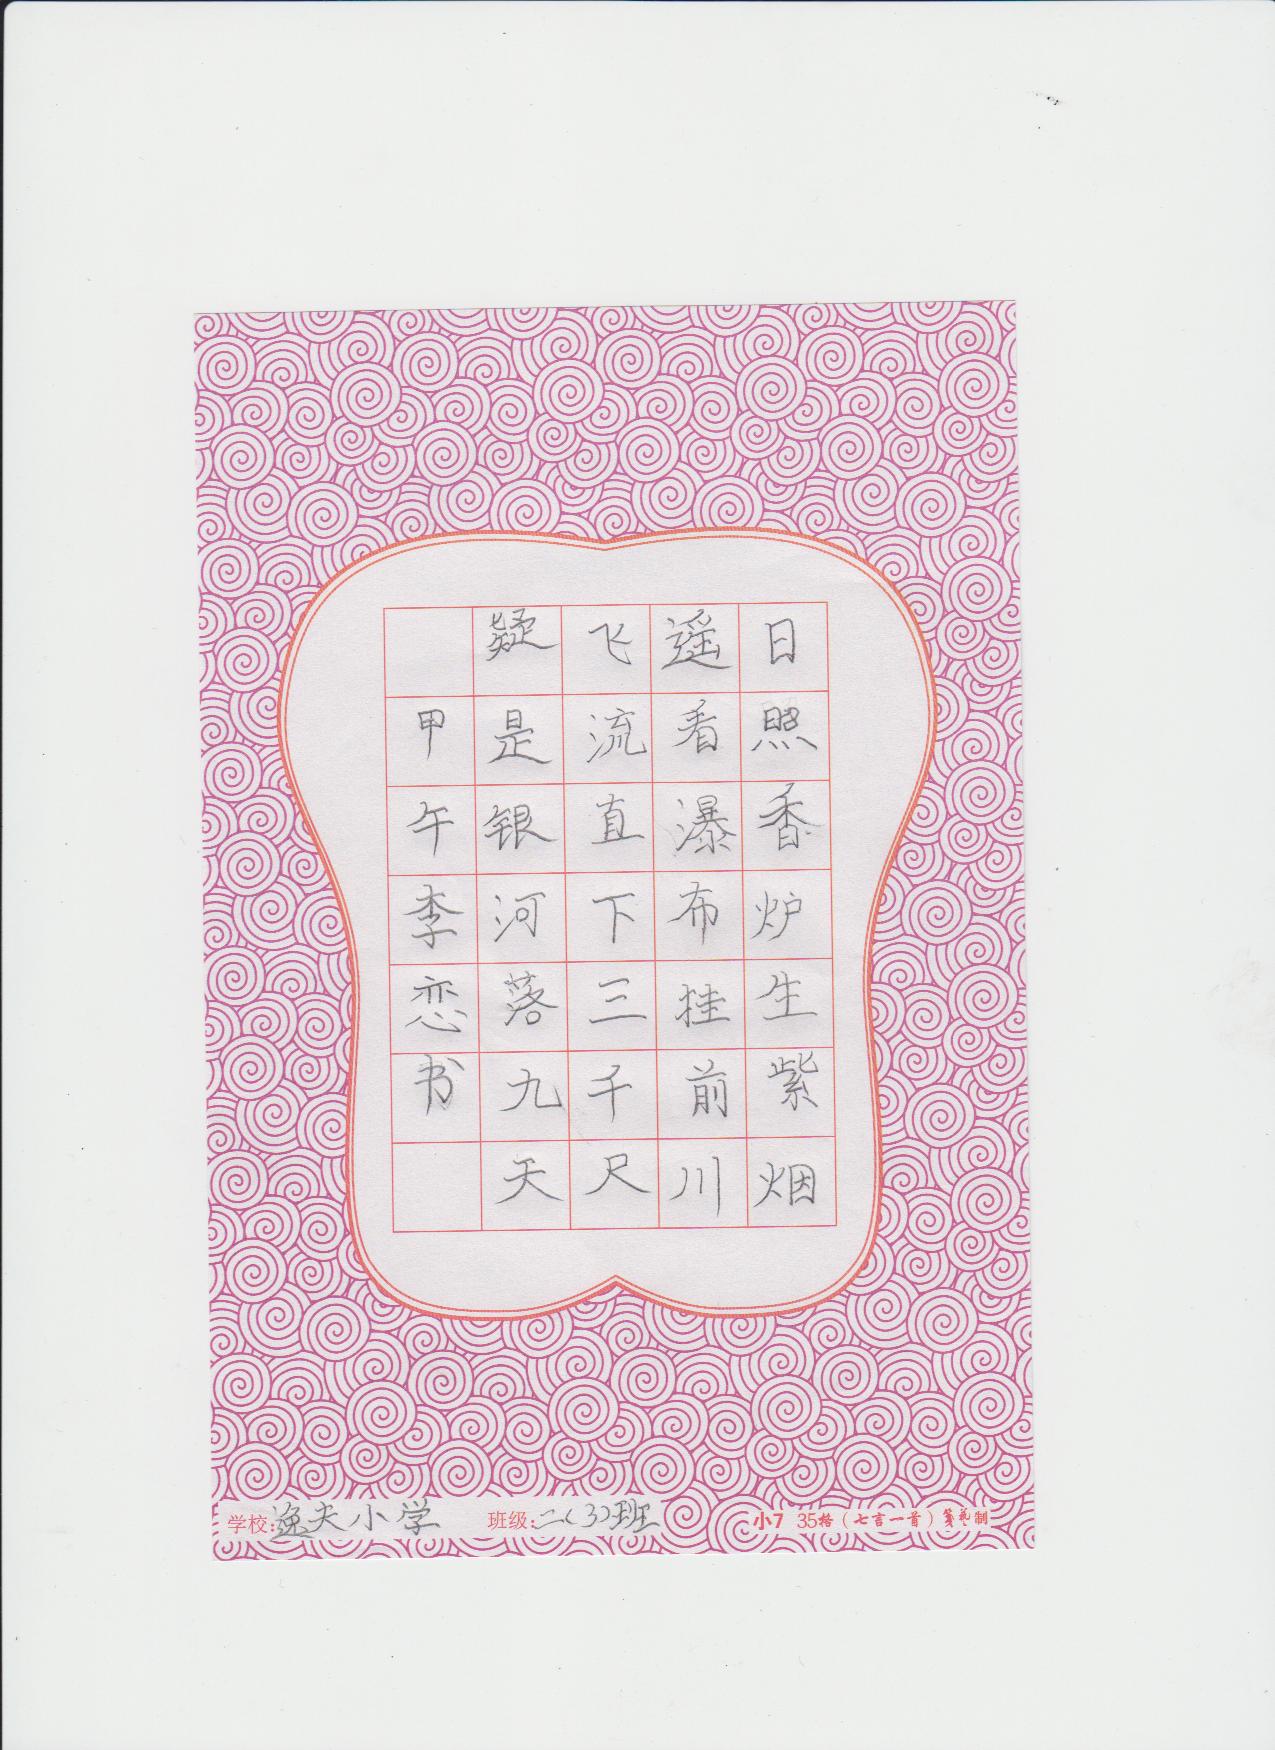 日照香炉生紫烟
遥看瀑布挂前川
飞流直下三千尺
疑是银河落九天
甲午李恋书
学校:逸夫小学 班级:二(3)班 小7 35格(七言一首)笺艺制